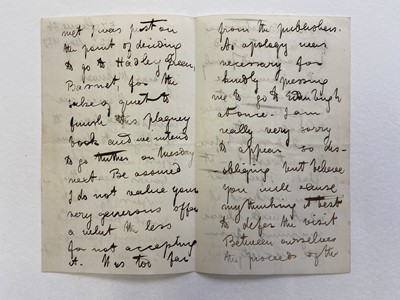 met I was just on
the point of deciding
to go to Hadley Green,
Barnet, for the
sake of quiet to
finish this plaguey
book and we intend
to go thither on Tuesday
next. Be assured
I do not value your
very generous offer
a whit the less
for not accepting
it. It was too far
from the publishers.
No apology was
necessary for
kindly pressing
me to go to Edinburgh
at once. I am
really very sorry
to appear so dis-
obliging but believe
you will excuse
my thinking it best
to defer the visit
Between ourselves
the proceeds of the